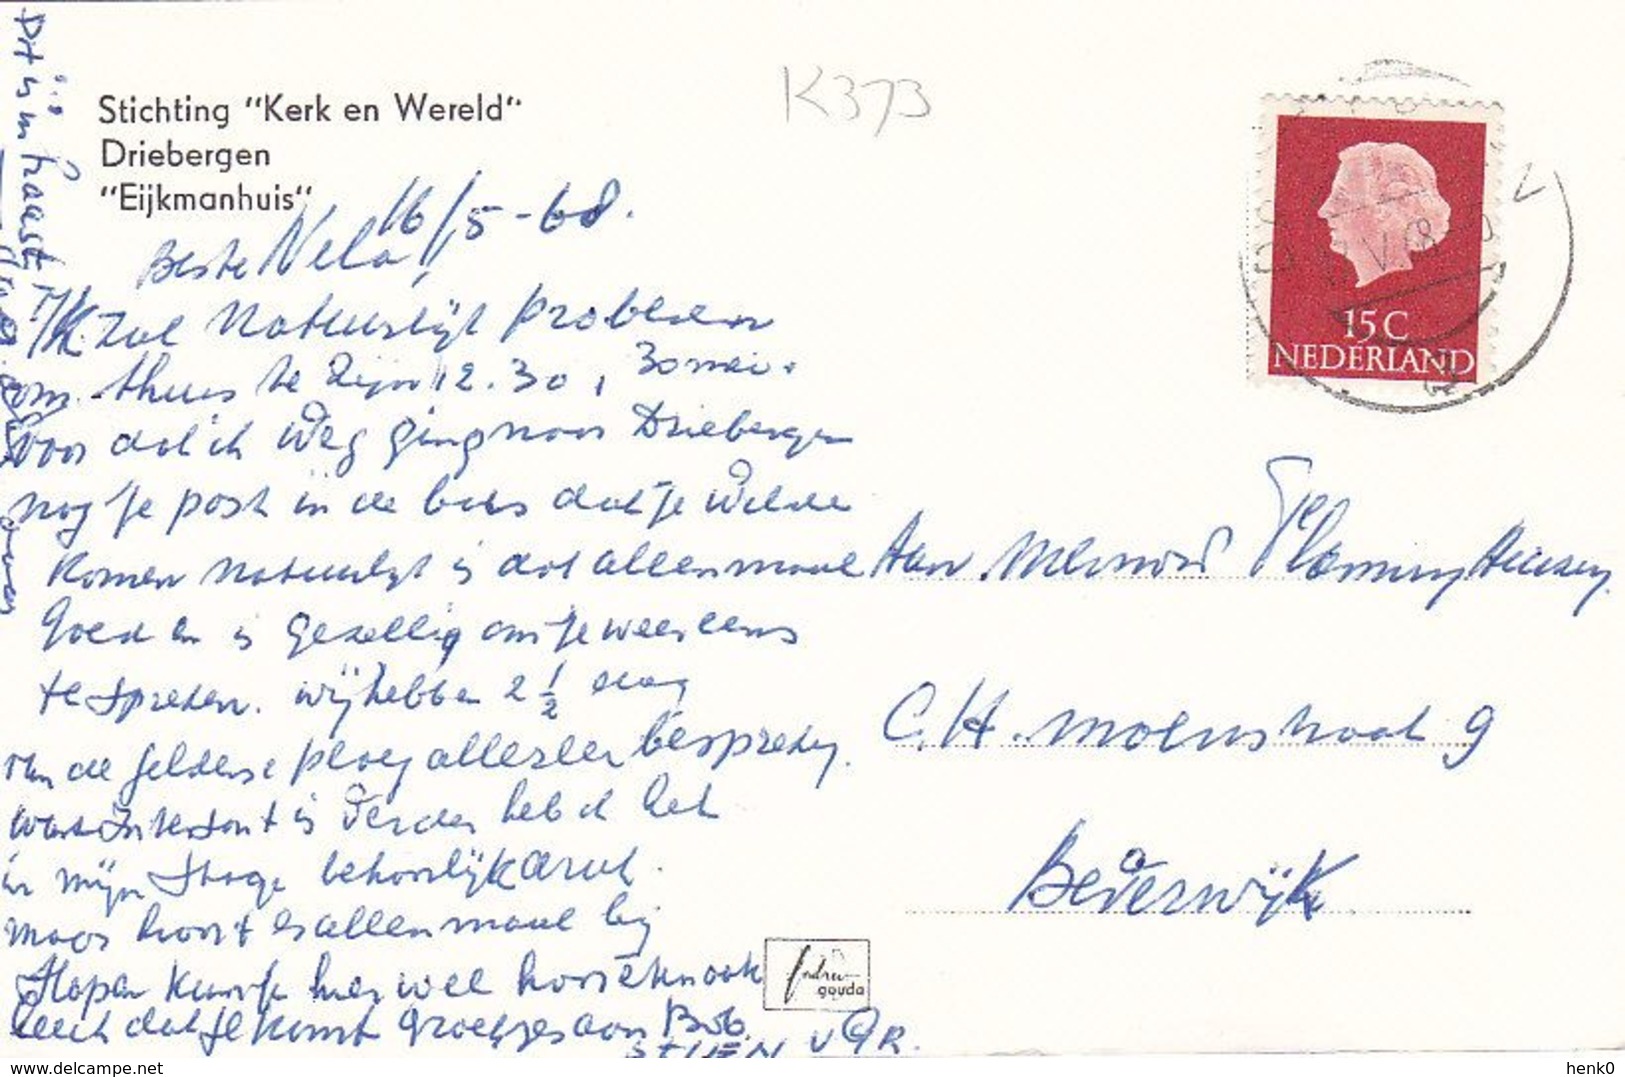 Stichting “Kerk en Wereld“
Driebergen
“Eijkmanhuis“
K373
16/5-68.
Beste Nela,
Ik zal Natuurlijk proberen
om thuis te zijn 12.30, 30 mei.
Voor dat ik weg ging naar Driebergen
nog je post in de bus dat je wilde
komen Natuurlijk is dat allemaal
Goed en is Gezellig om je weer eens
te spreken. wij hebben 2 1/2 dag
van de Gelderse ploeg allerlei
wat Interesant is Verder heb ik het
in mijn Stage behoorlijk druk.
maar hoort er allemaal bij
Hopen kun je hier wel
leuk dat je komt Groetjes aan Bob.
Dit is in haast
15 C
NEDERLAND
V 68
Aan
C.H. moensstraat 9
Beverwijk
gouda
delcampe.net
henk0